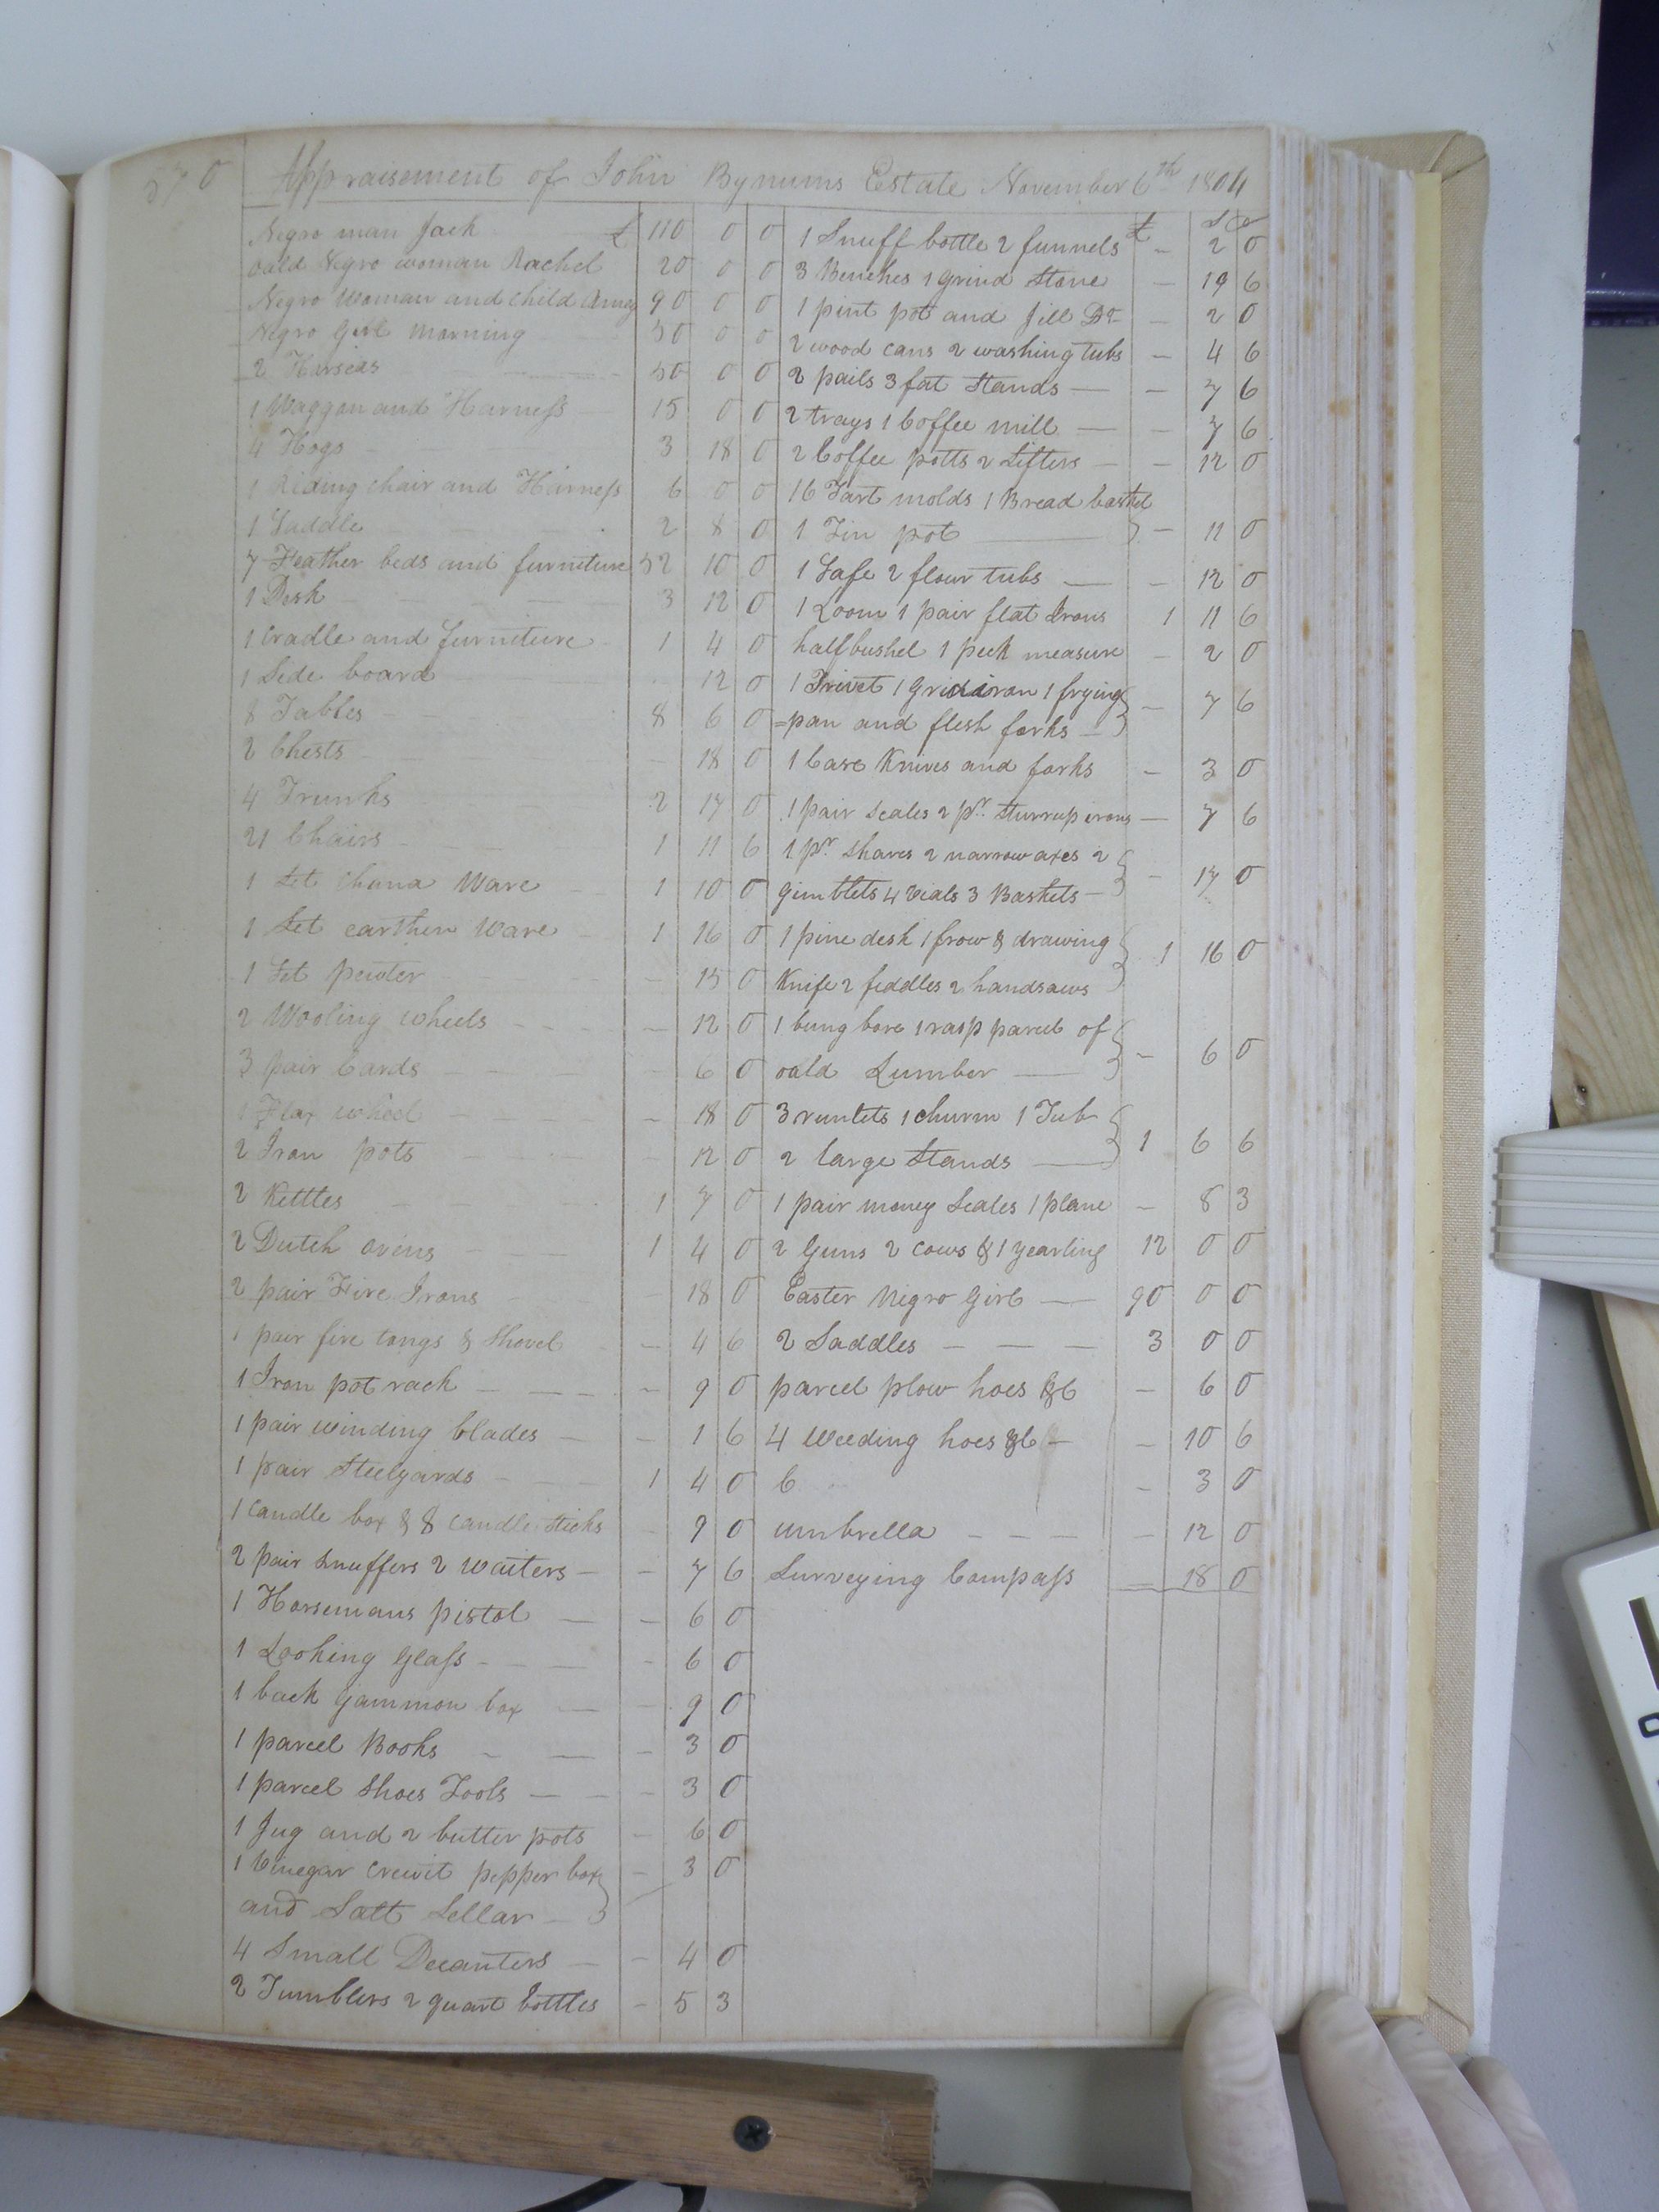 570 Appraisement of John Bynums Estate November 6th 1804
Negro man Jack £ 110 0 0
oald Negro woman Rachel 20 0 0
Negro Woman and child Amey 90 0 0
Negro Girl Morning 50 0 0
2 Horseas 50 0 0
1 Waggon and Harness 15 0 0
4 Hogs 3 18 0
1 Riding chair and Harness 6 0 0
1 Saddle 2 8 0
7 Feather beds and furniture 52 10 0
1 Desk 3 12 0
1 Cradle and furniture 1 4 0
1 Side board 12 0
8 Tables 8 6 0
2 Chests - 18 0
4 Trunks 2 17 0
21 Chairs 1 11 6
1 Set Chana Ware 1 10 0
1 Set earthen Ware 1 16 0
1 Set pewter - 15 0
2 Wooling wheels - 12 0
3 pair Cards - 6 0
1 Flax wheel - 18 0
2 Iron pots - 12 0
2 Kettles 1 7 0
2 Dutch ovens 1 4 0
2 pair Fire Irons - 18 0
1 pair fire tongs & Shovel - 4 6
1 Iron pot rack - 9 0
1 pair winding blades - 1 6
1 pair Steelyards 1 4 0
1 candle box & 8 candle sticks - 9 0
2 pair Snuffers 2 waiters - 7 6
1 Horsemans pistol - 6 0
1 Looking Glass - 6 0
1 back gammon box - 9 0
1 parcel Books - 3 0
1 parcel Shoes Tools - 3 0
1 Jug and 2 butter pots - 6 0
1 Vinegar Crewit pepper box - 3 0
and Salt Sellar
4 Small Decanters - 4 0
2 Tumblers 2 quart bottles - 5 3
£ S D
1 Snuff bottle 2 funnels - 2 0
3 Benches 1 grind Stone - 19 6
1 pint pot and Jill Do - 2 0
2 wood cans 2 washing tubs - 4 6
2 pails 3 fat Stands - 7 6
2 trays 1 Coffee mill - 7 6
2 Coffee potts 2 Sifters - 12 0
16 Tart molds 1 Bread basket
1 Tin pot - 11 0
1 Safe 2 flour tubs - 12 0
1 Loom 1 pair flat Irons 1 11 6
half bushel 1 peck measure - 2 0
1 Trivet 1 Gridiron 1 frying
=pan and flesh forks - 7 6
1 Case Knives and forks - 3 0
1 pair Scales 2 pr. Sturrup irons - 7 6
1 pr. Shares 2 narrow axes 2
gimblets 4 Vials 3 Baskets - 17 0
1 pine desk 1 frow & drawing
Knife 2 fiddles 2 handsaws 1 16 0
1 bung bore 1 rasp parcel of
oald Lumber - 6 0
3 runlets 1 churn 1 Tub
2 large Stands 1 6 6
1 pair money Scales 1 plane - 8 3
2 Guns 2 cows & 1 yearling 12 0 0
Easter Negro Girl 90 0 0
2 Saddles 3 0 0
parcel plow hoes &C - 6 0
4 Weeding hoes &C - 10 6
6 - 3 0
umbrella - 12 0
Surveying Compass - 18 0